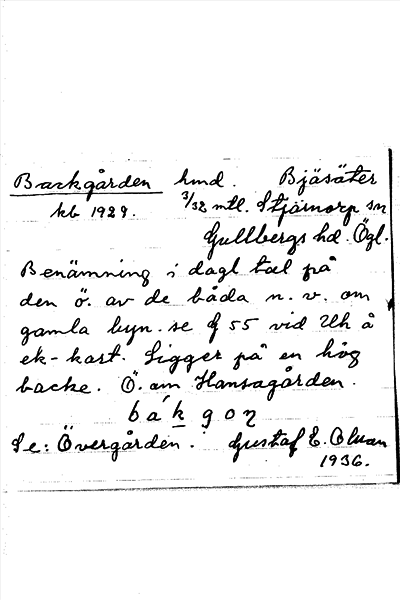 Backgården hmd. Bjäsäter
kb 1929. 3/32 mtl. Stjärnorp sn
Gullbergs hd. Ögl.
Benämning i dagl tal på
den ö. av de båda n. v. om
gamla byn. se f 55 vid Uh å
ek-kart. Ligger på en hög
backe. Ö. om Hansagården.
Se: Övergården. Gustaf E. Olsson
1936.